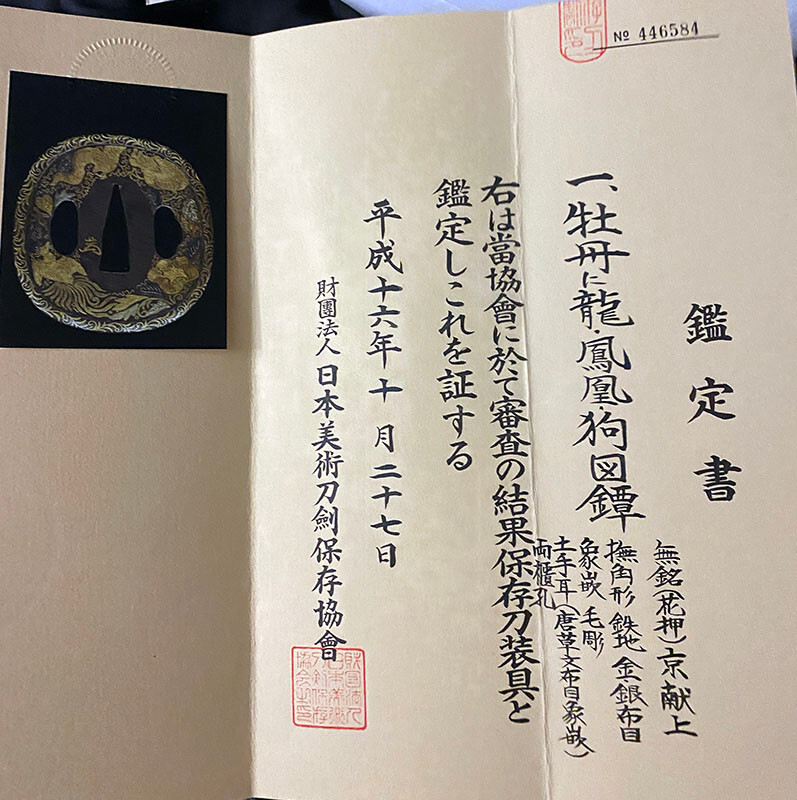 № 446584
鑑定書
一、牡丹に龍・鳳凰・狗図鐔
無銘(花押)京献上
撫角形 鉄地 金・銀布目
象嵌 毛彫
土手耳(唐草文布目象嵌)
両櫃孔
右は當協會に於て審査の結果保存刀装具と
鑑定しこれを証する
平成十六年十月二十七日
財團法人 日本美術刀劍保存協會